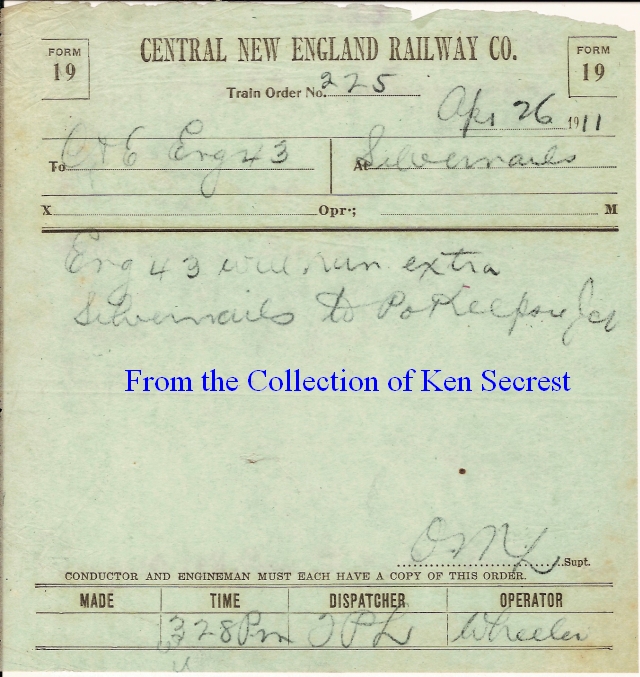 FORM 19 CENTRAL NEW ENGLAND RAILWAY CO. FORM 19
Train Order No. 225
Apr 26 1911
To C&E Eng 43 At Silvernails
X Opr.; M
Eng 43 will run extra
Silvernails to PoKeepsie Jct
From the Collection of Ken Secrest
OML Supt.
CONDUCTOR AND ENGINEMAN MUST EACH HAVE A COPY OF THIS ORDER.
MADE TIME DISPATCHER OPERATOR
328 Pm Wheeler